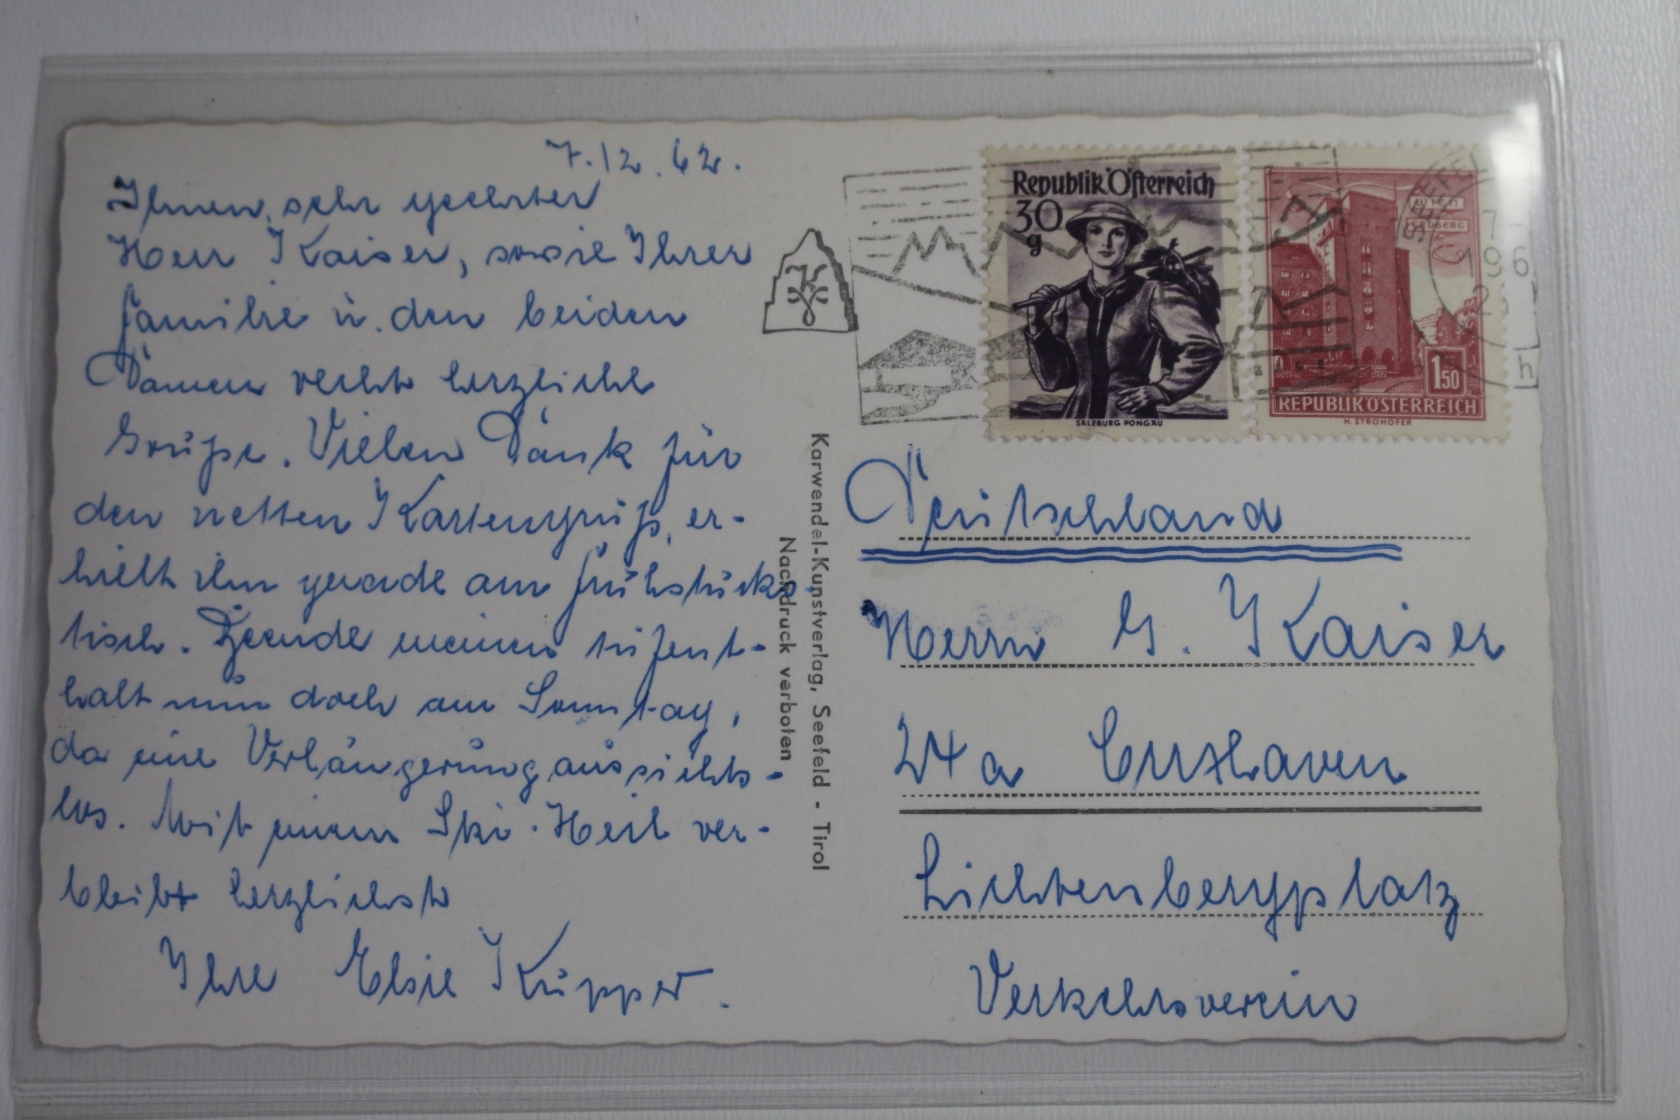 7.12.62.
Ihnen, sehr geehrter
Herr Kaiser, sowie Ihrer
Familie u. den beiden
Damen recht herzliche
Grüße. Vielen Dank für
den netten Kartengruß, er-
hielt ihn gerade am Frühstücks-
tisch. Beende meinen Aufent-
halt nun doch am Sonntag,
da eine Verlängerung aussichts-
los. Mit einem Ski-Heil ver-
bleibt herzlichst
Ihre Elsie Küpper.
K
Karwendel-Kunstverlag, Seefeld - Tirol
Nachdruck verboten
Republik Österreich
30
g
SALZBURG PONGAU
1 50
REPUBLIK ÖSTERREICH
H. STROHOFER
SEEFEL
7
196
h
Deutschland
Herrn G. Kaiser
24a Cuxhaven
Lichtenbergplatz
Verkehrsverein